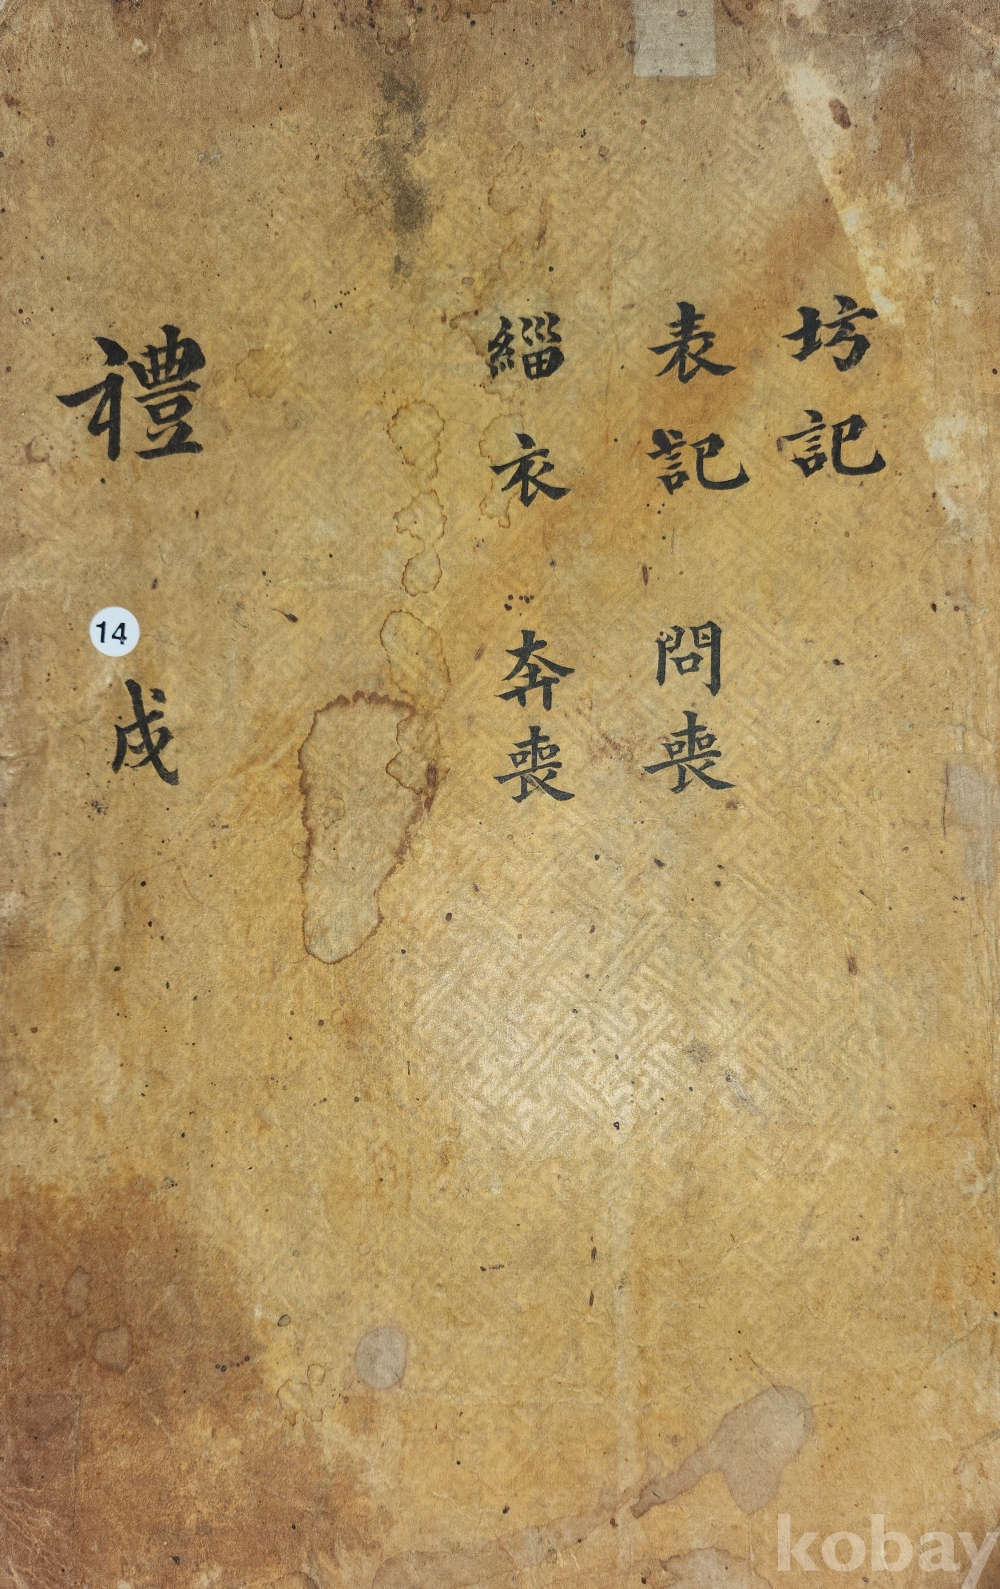 坊記
表記 問喪
緇衣 奔喪
禮 戌
14
kobay